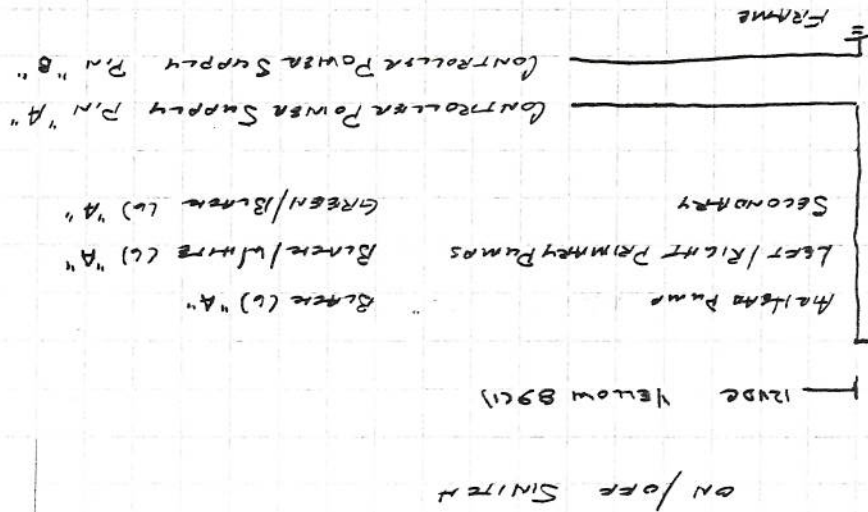 ON/OFF SWITCH
12VDC YELLOW 89(1)
AIRHEAD PUMP BLACK (6) "A"
LEFT/RIGHT PRIMARY PUMPS BLACK/WHITE (6) "A"
SECONDARY GREEN/BLACK (6) "A"
CONTROLLER POWER SUPPLY PIN "A"
CONTROLLER POWER SUPPLY PIN "B"
FRAME